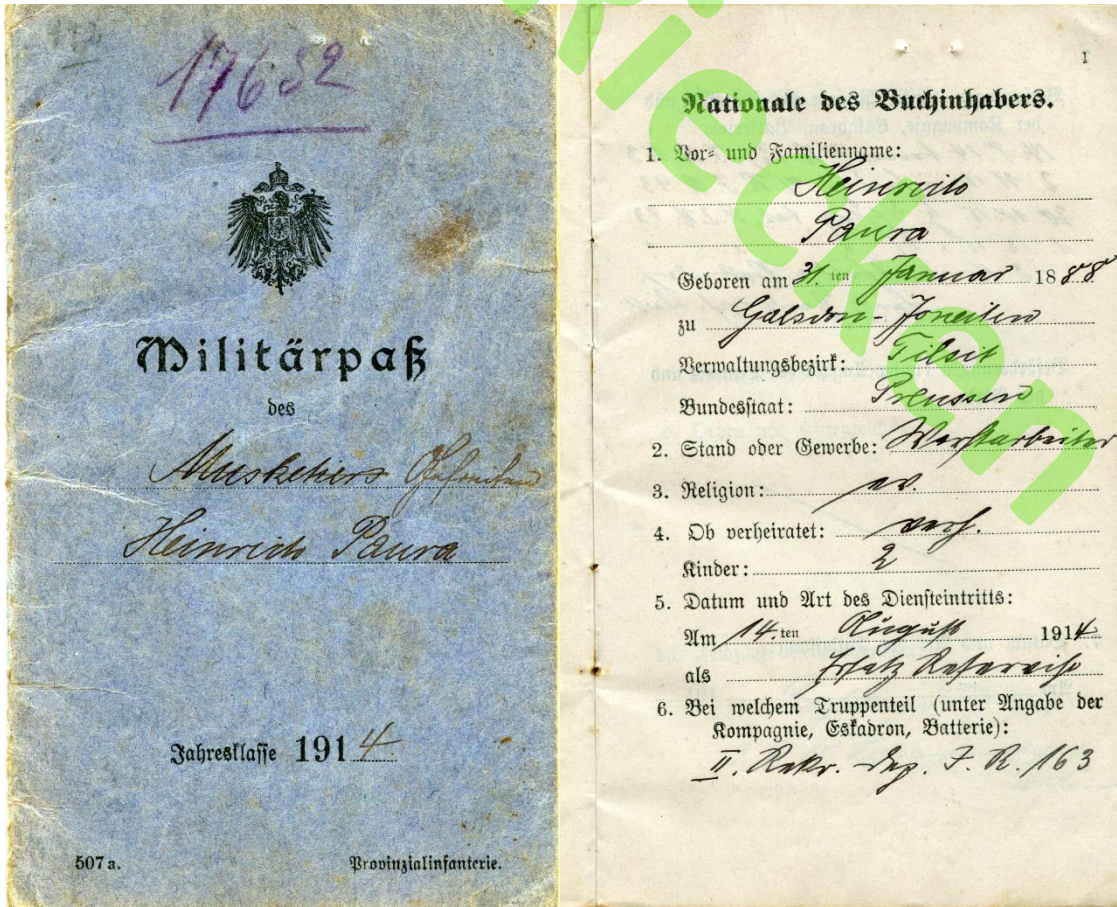 17652
Militärpaß
des
Musketiers Gefreiten
Heinrich Paura
Jahresklasse 1914
507 a.
Provinzialinfanterie.
1
Nationale des Buchinhabers.
1. Vor- und Familienname:
Heinrich
Paura
Geboren am 31. ten Januar 1888
zu Galsdon-Joneiten
Verwaltungsbezirk: Tilsit
Bundesstaat: Preussen
2. Stand oder Gewerbe: Werftarbeiter
3. Religion: ev.
4. Ob verheiratet: verh.
Kinder: 2
5. Datum und Art des Diensteintritts:
Am 14. ten August 1914
als Ersatz Reservist
6. Bei welchem Truppenteil (unter Angabe der
Kompagnie, Eskadron, Batterie):
II. Rekr. Dep. I. R. 163